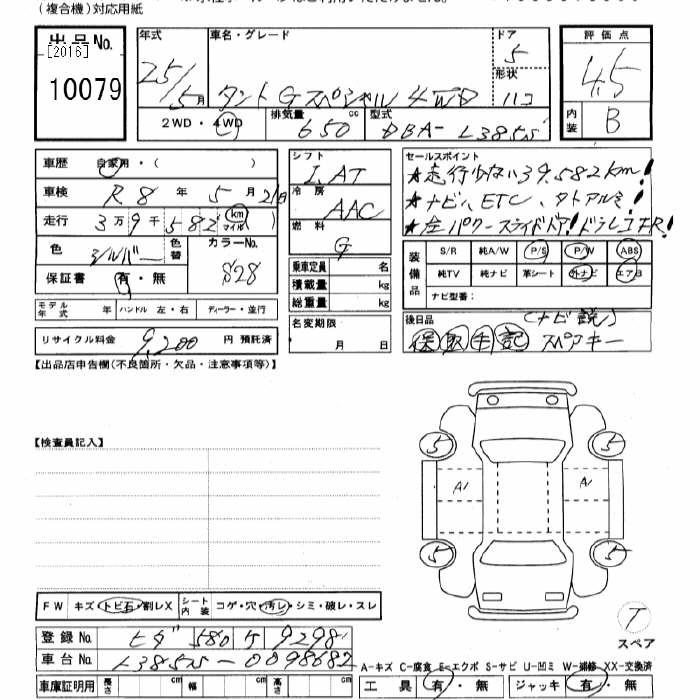 (複合機)対応用紙
出品No.
[2016]
10079
年式 25/5月
車名・グレード タントGスペシャル 4WD
ドア 5
形状 ハコ
2WD・4WD
排気量 650 cc
型式 DBA-L385S
評価点 4.5
内装 B
車歴 自家用・( )
車検 R8年5月21日
走行 3万9千582 km マイル ( )
色 シルバー 色替 カラーNo. S28
保証書 有・無
モデル年式 年 ハンドル 左・右 ディーラー・並行
リサイクル料金 9,200 円 預託済
シフト IAT
冷房 AAC
燃料 G
乗車定員 名
積載量 kg
総重量 kg
名変期限 月 日
セールスポイント
★走行少ない39.582km!
★ナビ、ETC、タトアルミ!
★左パワースライドドア!ドラレコFR!
装備品 S/R 純A/W P/S P/W ABS
純TV 純ナビ 革シート 外ナビ エアB
ナビ型番:
後日品 (ナビ説)
保 取 手 記 スペアキー
【出品店申告欄(不良箇所・欠品・注意事項等)】
【検査員記入】
5 5
A1 A1
5 5
T
スペア
FW キズ・トビ石・割レX シート内装 コゲ・穴・汚レ・シミ・破レ・スレ
登録No. 580 9298
車台No. L385S-0098682
A-キズ C-腐食 E-エクボ S-サビ U-凹ミ W-補修 XX-交換済
車庫証明用 長さ cm 幅 cm 高さ cm
工具 有・無 ジャッキ 有・無